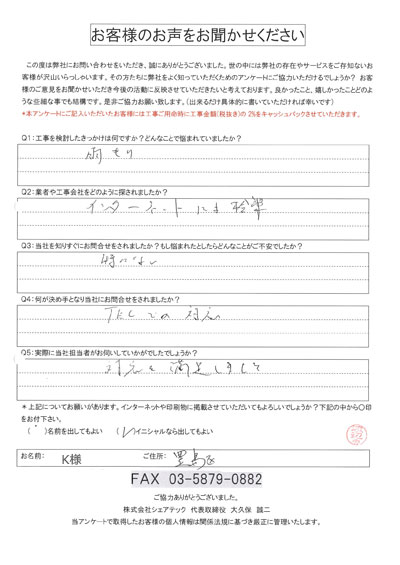 お客様のお声をお聞かせください
この度は弊社にお問い合わせをいただき、誠にありがとうございました。世の中には弊社の存在やサービスをご存知ないお
客様が沢山いらっしゃいます。その方たちに弊社をよく知っていただくためのアンケートにご協力いただけるでしょうか? お客
様のご意見をお聞かせいただき今後の活動に反映させていただきたいと考えております。良かったこと、嬉しかったことどのよ
うな些細な事でも結構です。是非ご協力お願い致します。(出来るだけ具体的に書いていただければ幸いです)
*本アンケートにご記入いただいたお客様には工事ご用命時に工事金額(税抜き)の 2%をキャッシュバックさせていただきます。
Q1:工事を検討したきっかけは何ですか?どんなことで悩まれていましたか?
雨もり
Q2:業者や工事会社をどのように探されましたか?
インターネットによる検索
Q3:当社を知りすぐにお問合せをされましたか?もし悩まれたとしたらどんなことがご不安でしたか?
特になし
Q4:何が決め手となり当社にお問合せをされましたか?
TELでの対応
Q5:実際に当社担当者がお伺いしていかがでしたでしょうか?
対応に満足しました
*上記についてお願いがあります。インターネットや印刷物に掲載させていただいてもよろしいでしょうか?下記の中から〇印
をお付下さい。
( )名前を出してもよい ( )イニシャルなら出してもよい
お名前: K様 ご住所: 豊島区
FAX 03-5879-0882
ご協力ありがとうございました。
株式会社シェアテック 代表取締役 大久保 誠二
当アンケートで取得したお客様の個人情報は関係法規に基づき厳正に管理いたします。